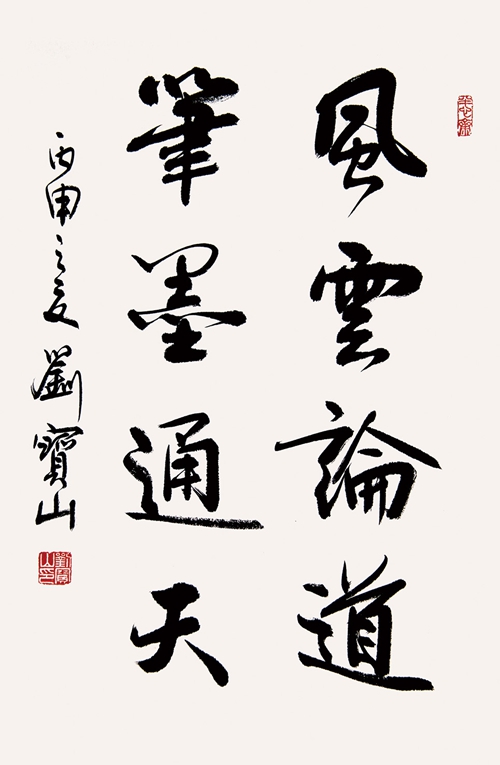 風雲論道
筆墨通天
丙申之夏 劉寶山
劉寶山印